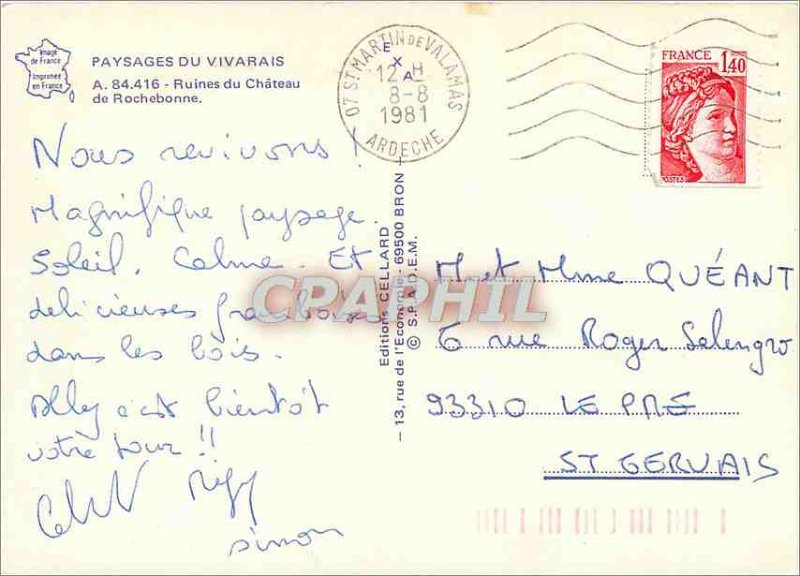 Image
de France
Imprimée
en France
PAYSAGES DU VIVARAIS
A. 84.416 - Ruines du Château
de Rochebonne.
07 ST MARTIN DE VALAMAS
12 H
8-8
1981
ARDECHE
FRANCE
1,40
POSTES
Nous revivons !
Magnifique paysage.
Soleil. Calme. Et
délicieuses framboises
dans les bois.
c'est bientôt
votre tour !!
Simon
Editions CELLARD
13, rue de l'Economie - 69500 BRON
© S.P.A.D.E.M.
CPAPHIL
M et Mme QUÉANT
6 rue Roger Salengro
93310 LE PRE
ST GERVAIS